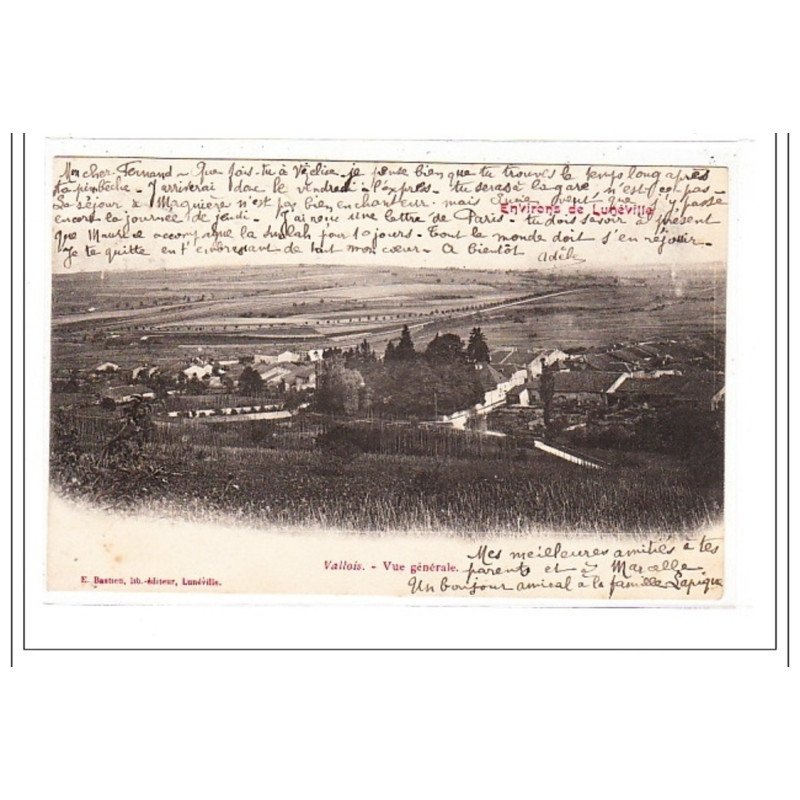 Mon cher Fernand - Que fais-tu à Vézelise - je pense bien que tu trouves le temps long après
ta pimbêche - J'arriverai donc le vendredi - l'exprès - tu seras à la gare n'est-ce pas -
Le séjour à Magnières n'est pas bien enchanteur mais peut que j'y passe
Environs de Lunéville
encore la journée de jeudi - J'ai reçu une lettre de Paris - tu dois savoir à présent
que Maurice accompagne la pour 10 jours - Tout le monde doit s'en réjouir -
Je te quitte en t'embrassant de tout mon cœur - A bientôt Adèle
Mes meilleures amitiés à tes
Vallois. - Vue générale.
parents et à Marcelle
E. Bastien, lib.-éditeur, Lunéville.
Un bonjour amical à la famille Lapique